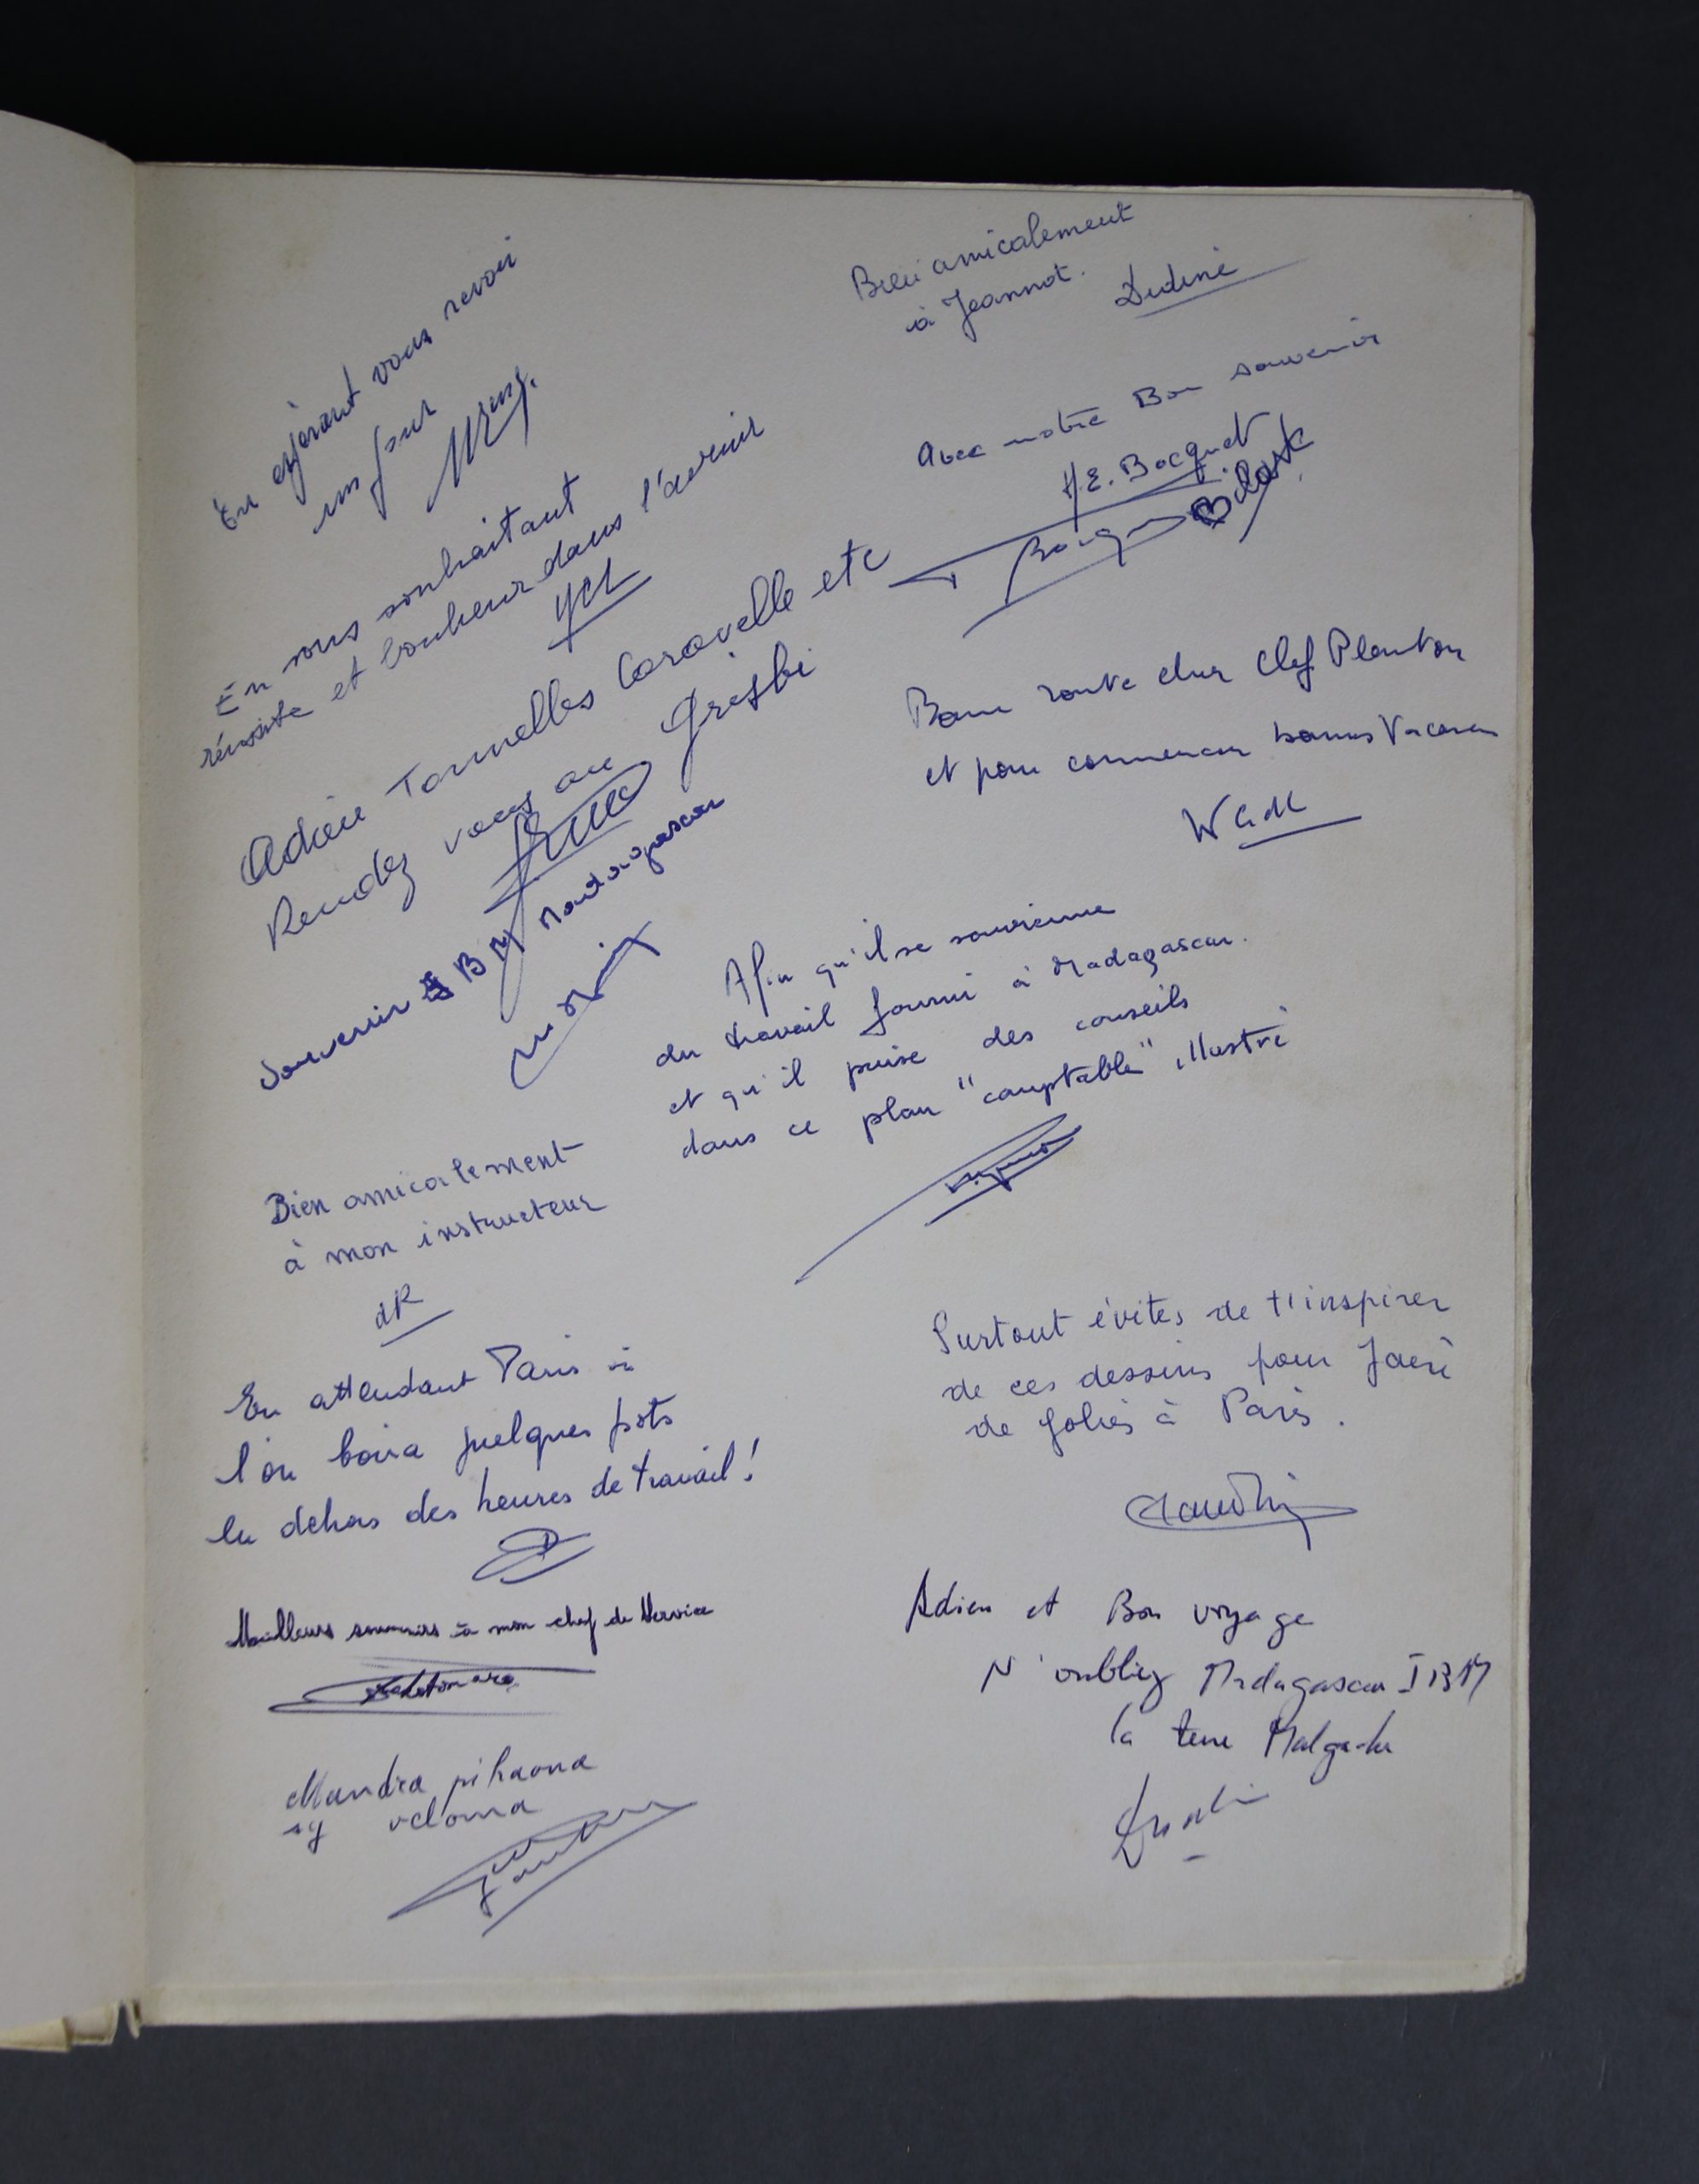 En espérant vous revoir
un jour
En vous souhaitant
réussite et bonheur dans l'avenir
Adieu Tonnelles Caravelle etc
Rendez vous au Grisbi
Souvenir IBM Madagascar
Bien amicalement
à mon instructeur
dR
En attendant Paris où
l'on boira quelques pots
en dehors des heures de travail!
Meilleurs souvenirs à mon chef de Service
Mandra pihaona
sy veloma
Bien amicalement
à Jeannot.
Dediné
Avec notre Bon souvenir
H.E. Bocquet
Bonne route cher Chef Planton
et pour commencer bonnes Vacances
Afin qu'il se souvienne
du travail fourni à Madagascar.
et qu'il puise des conseils
dans ce plan "comptable" illustré
Surtout évites de t'inspirer
de ces dessins pour faire
de folies à Paris.
Adieu et Bon voyage
N'oubliez Madagascar IBM
la terre Malgache